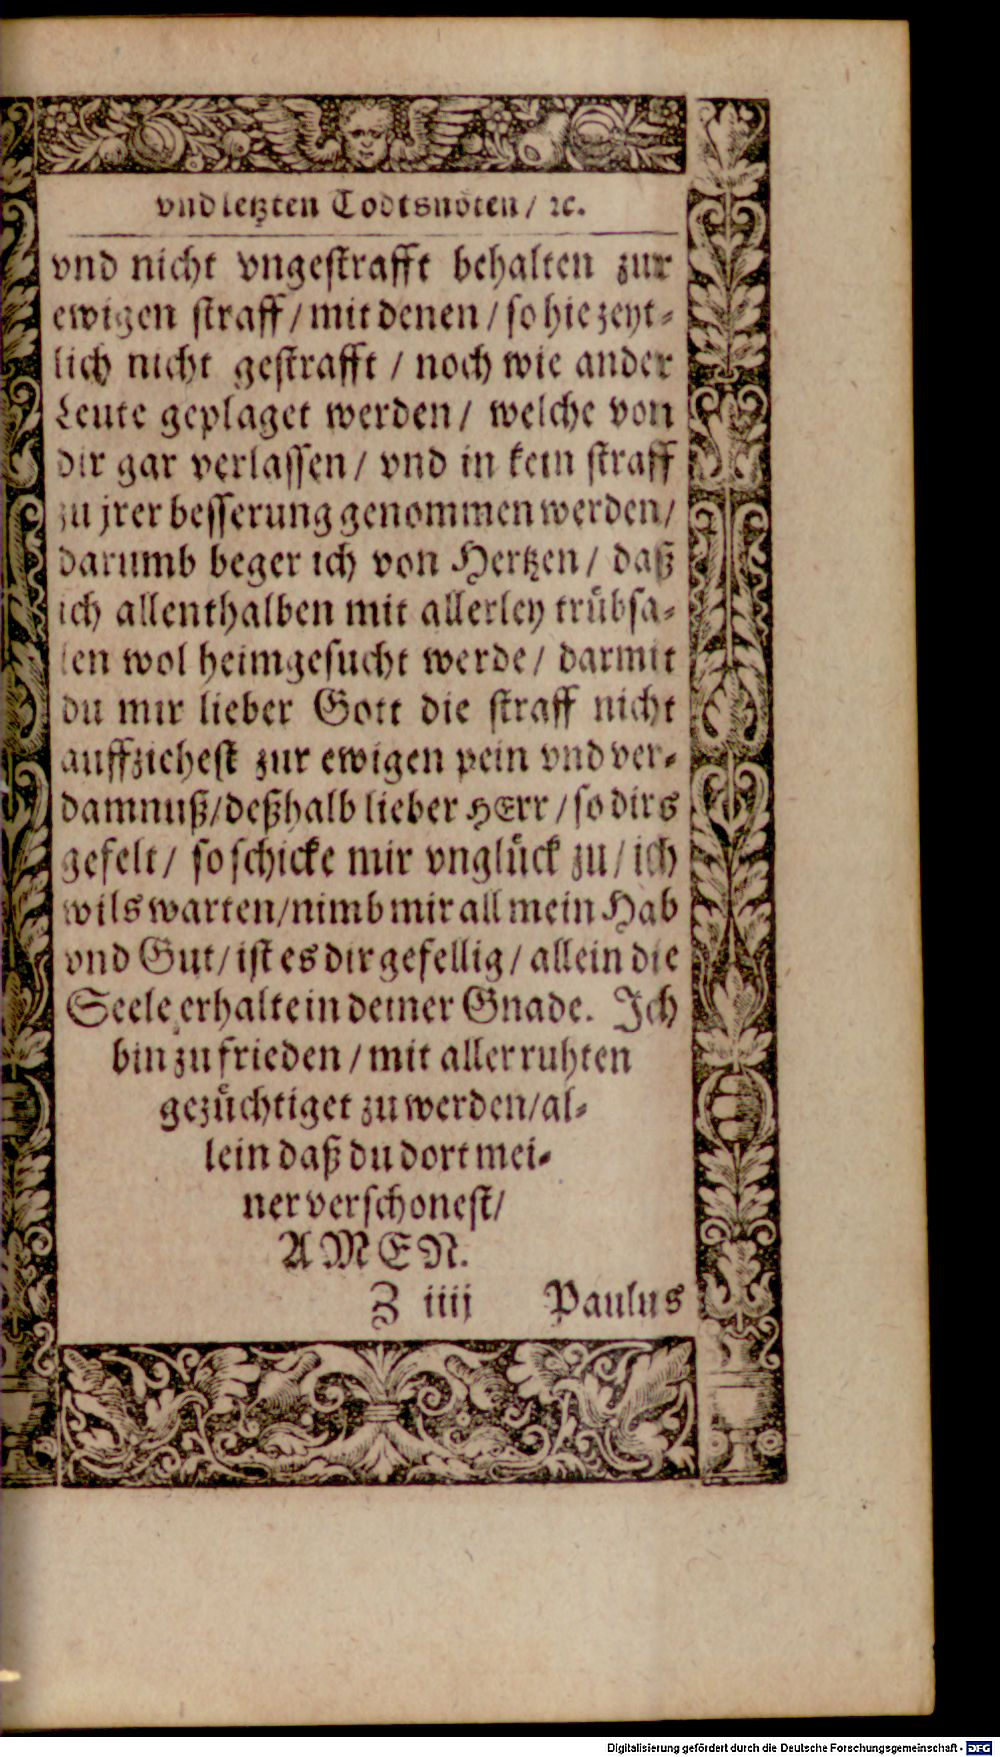 vnd letzten Todtsnöten / ꝛc.
vnd nicht vngestrafft behalten zur
ewigen straff / mit denen / so hie zeyt⸗
lich nicht gestrafft / noch wie ander
Leute geplaget werden / welche von
dir gar verlassen / vnd in kein straff
zu jrer besserung genommen werden /
darumb beger ich von Hertzen / daß
ich allenthalben mit allerley trübsa⸗
len wol heimgesucht werde / darmit
du mir lieber Gott die straff nicht
auffziehest zur ewigen pein vnd ver⸗
damnuß / deßhalb lieber HErr / so dirs
gefelt / so schicke mir vnglück zu / ich
wils warten / nimb mir all mein Hab
vnd Gut / ist es dir gefellig / allein die
Seele erhalte in deiner Gnade. Ich
bin zu frieden / mit aller ruhten
gezüchtiget zu werden / al⸗
lein daß du dort mei⸗
ner verschonest /
AMEN.
Z iiij Paulus
Digitalisierung gefördert durch die Deutsche Forschungsgemeinschaft - DFG